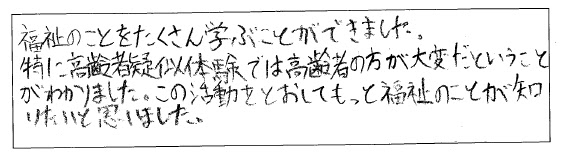 福祉のことをたくさん学ぶことができました。
特に高齢者疑似体験では高齢者の方が大変だということ
がわかりました。この活動をとおしてもっと福祉のことが知
りたいと思いました。